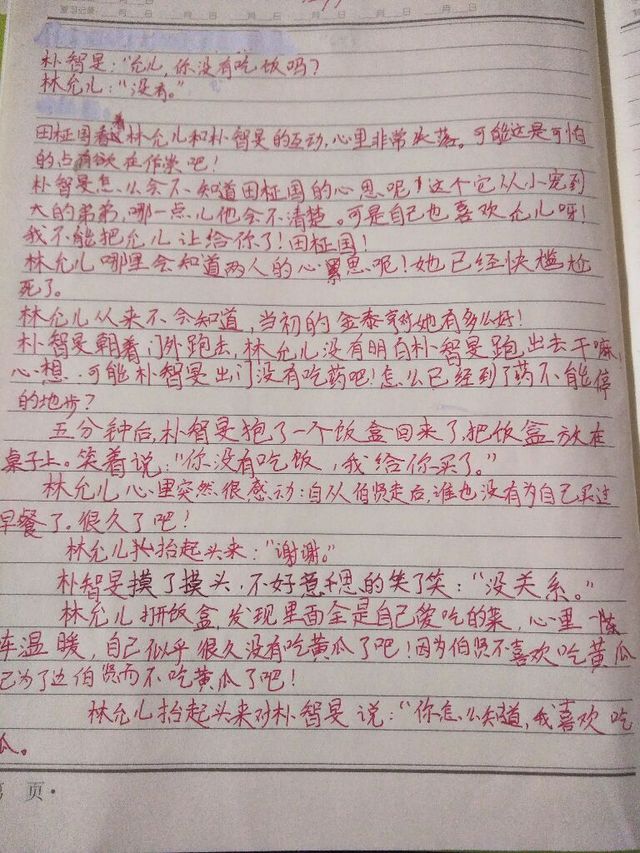 复习记录 月 日 月 日 月 日 月 日 月 日
朴智旻：“允儿，你没有吃饭吗？
林允儿：“没有。”
田柾国看着林允儿和朴智旻的互动，心里非常失落。可能这是可怕
的占有欲在作祟吧！
朴智旻怎么会不知道田柾国的心思呢！这个它从小宠到
大的弟弟，哪一点儿他会不清楚。可是自己也喜欢允儿呀！
我不能把允儿让给你了！田柾国！
林允儿哪里会知道两人的心思呢！她已经快尴尬
死了。
林允儿从来不会知道，当初的金泰亨对她有多么好！
朴智旻朝着门外跑去，林允儿没有明白朴智旻跑出去干嘛！
心想，可能朴智旻出门没有吃药吧！怎么已经到了药不能停
的地步？
五分钟后，朴智旻抱了一个饭盒回来了，把饭盒放在
桌子上。笑着说：“你没有吃饭，我给你买了。”
林允儿心里突然很感动：自从伯贤走后，谁也没有为自己买过
早餐了。很久了吧！
林允儿抬起头来：“谢谢。”
朴智旻摸了摸头，不好意思的笑了笑：“没关系。”
林允儿打开饭盒，发现里面全是自己爱吃的菜，心里一阵
温暖，自己似乎很久没有吃黄瓜了吧！因为伯贤不喜欢吃黄瓜
己为了边伯贤而不吃黄瓜了吧！
林允儿抬起头来对朴智旻说：“你怎么知道，我喜欢吃
瓜。
页·